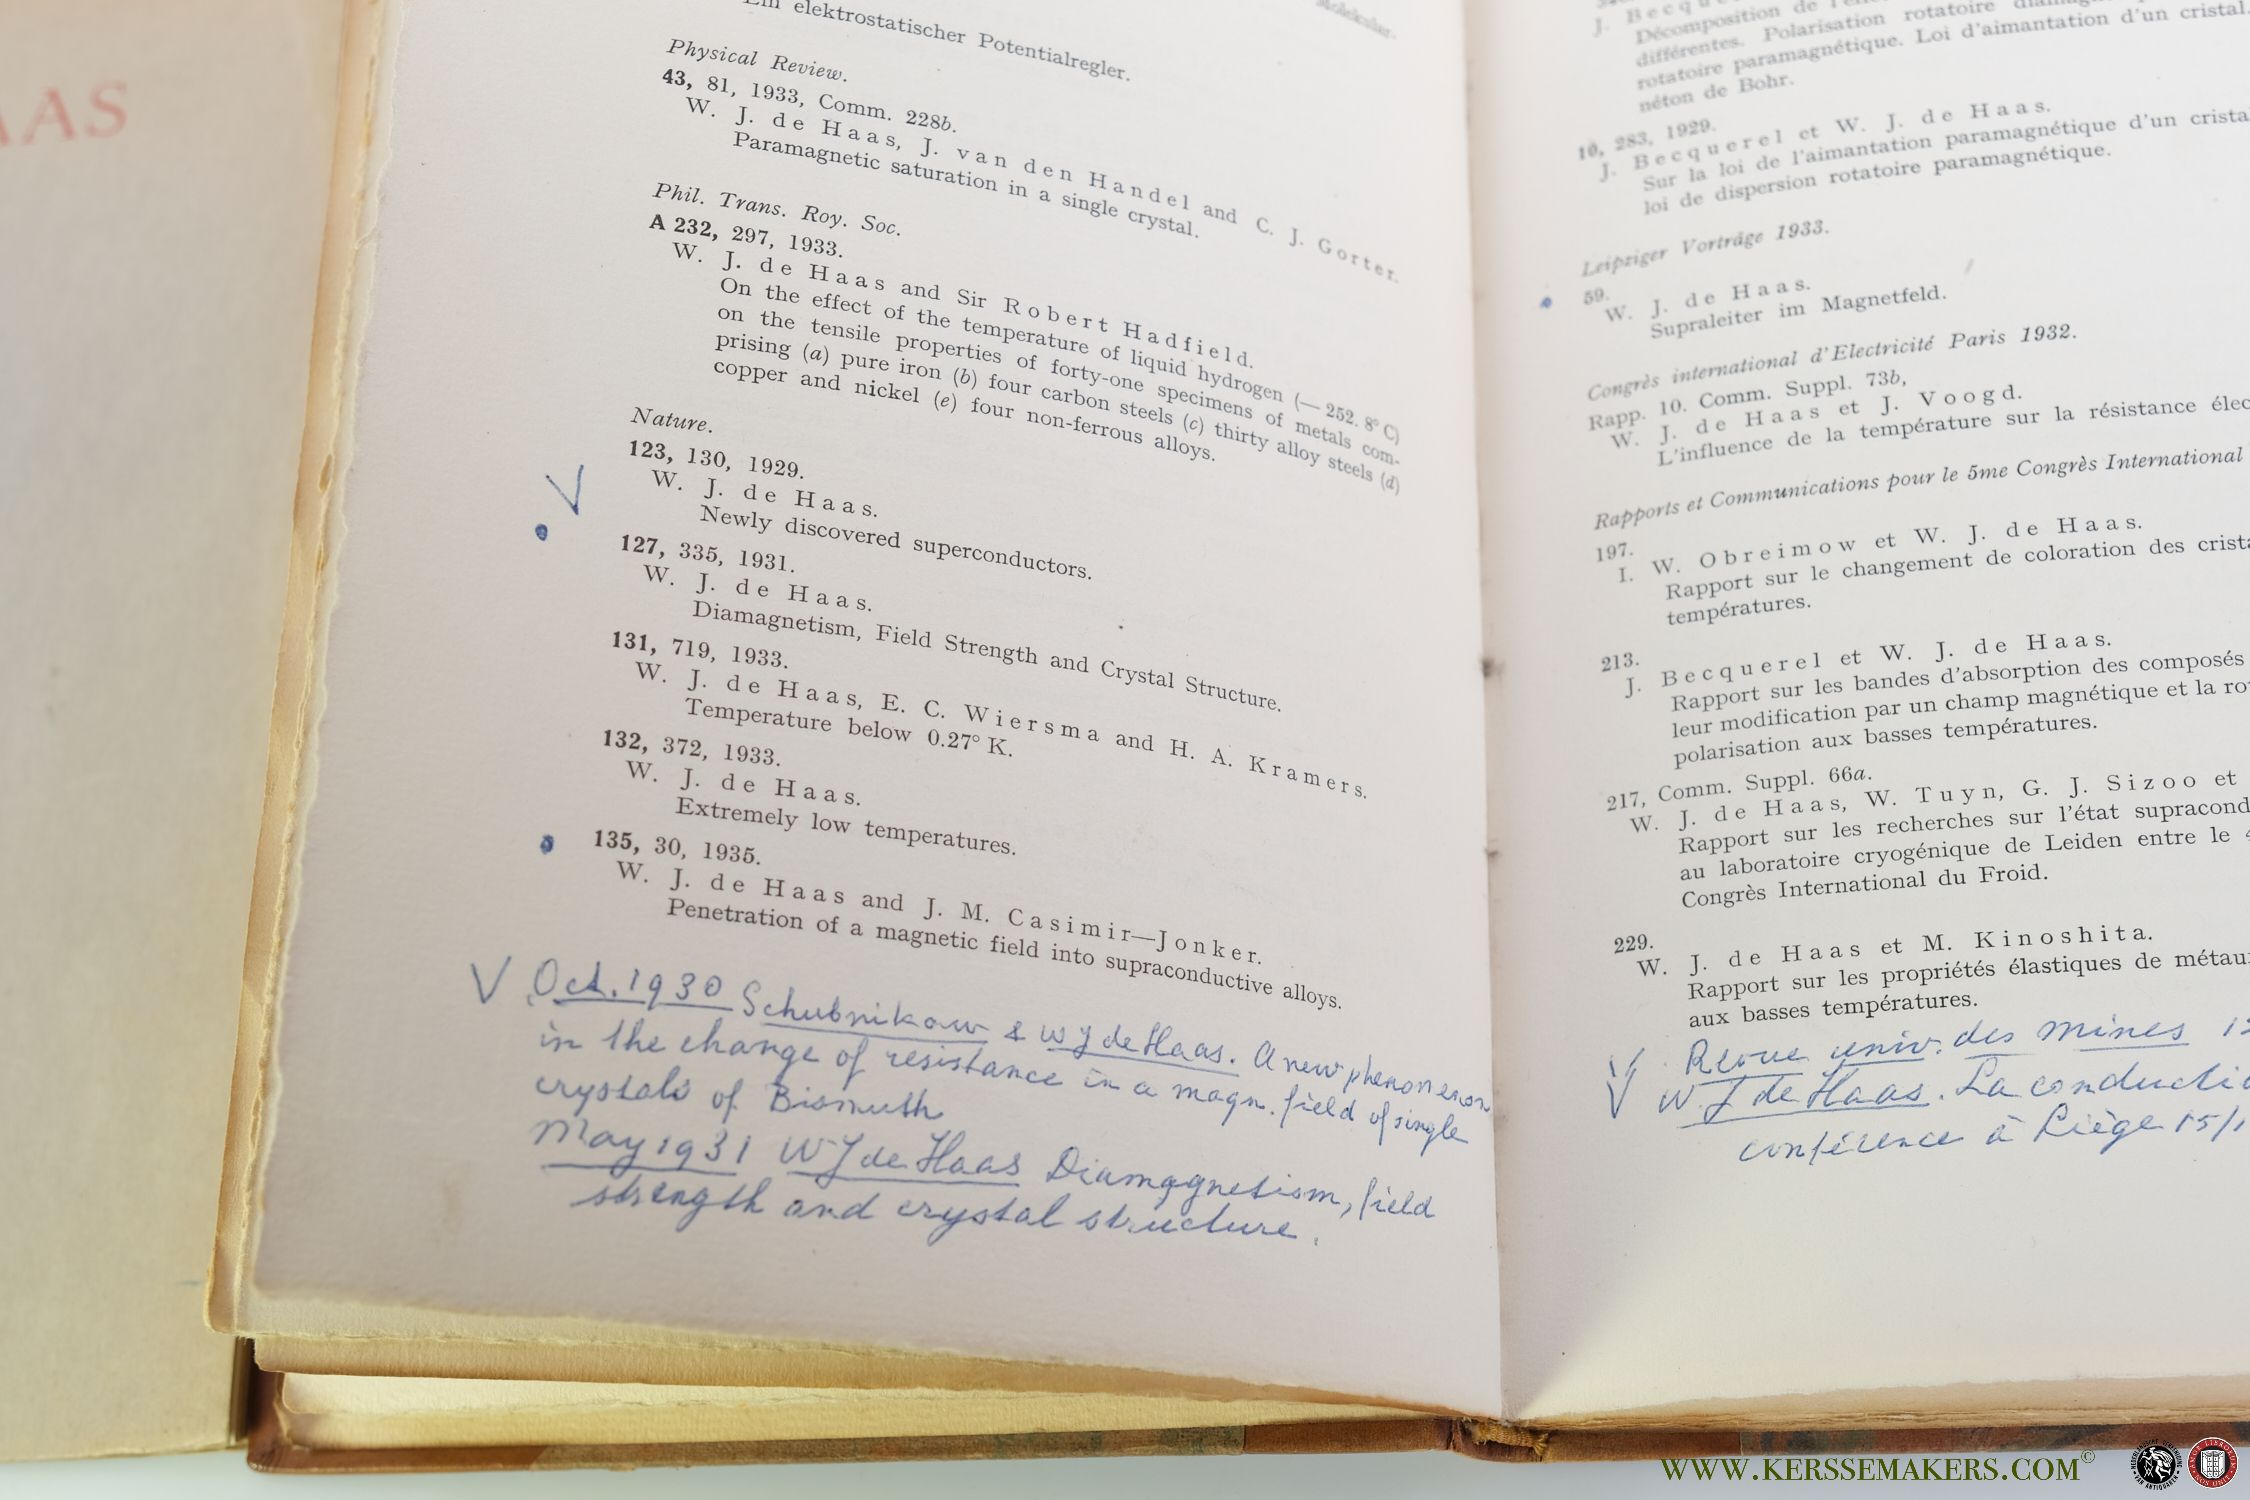 AAS
Ein elektrostatischer Potentialregler.
Physical Review.
43, 81, 1933, Comm. 228b.
W. J. de Haas, J. van den Handel and C. J. Gorter.
Paramagnetic saturation in a single crystal.
Phil. Trans. Roy. Soc.
A 232, 297, 1933.
W. J. de Haas and Sir Robert Hadfield.
On the effect of the temperature of liquid hydrogen (— 252. 8° C)
on the tensile properties of forty-one specimens of metals com-
prising (a) pure iron (b) four carbon steels (c) thirty alloy steels (d)
copper and nickel (e) four non-ferrous alloys.
Nature.
123, 130, 1929.
W. J. de Haas.
Newly discovered superconductors.
127, 335, 1931.
W. J. de Haas.
Diamagnetism, Field Strength and Crystal Structure.
131, 719, 1933.
W. J. de Haas, E. C. Wiersma and H. A. Kramers.
Temperature below 0.27° K.
132, 372, 1933.
W. J. de Haas.
Extremely low temperatures.
135, 30, 1935.
W. J. de Haas and J. M. Casimir—Jonker.
Penetration of a magnetic field into supraconductive alloys.
V Oct. 1930 Schubnikow & W J de Haas. A new phenomenon
in the change of resistance in a magn. field of single
crystals of Bismuth
May 1931 W J de Haas Diamagnetism, field
strength and crystal structure.
J. Becq
Décomposition de l'
différentes. Polarisation rotatoire
rotatoire paramagnétique. Loi d'aimantation d'un cristal.
néton de Bohr.
10, 283, 1929.
J. Becquerel et W. J. de Haas.
Sur la loi de l'aimantation paramagnétique d'un crista
loi de dispersion rotatoire paramagnétique.
Leipziger Vorträge 1933.
59.
W. J. de Haas.
Supraleiter im Magnetfeld.
Congrès international d'Electricité Paris 1932.
Rapp. 10. Comm. Suppl. 73b,
W. J. de Haas et J. Voogd.
L'influence de la température sur la résistance élec
Rapports et Communications pour le 5me Congrès International
197.
I. W. Obreimow et W. J. de Haas.
Rapport sur le changement de coloration des crista
températures.
213.
J. Becquerel et W. J. de Haas.
Rapport sur les bandes d'absorption des composés
leur modification par un champ magnétique et la ro
polarisation aux basses températures.
217, Comm. Suppl. 66a.
W. J. de Haas, W. Tuyn, G. J. Sizoo et
Rapport sur les recherches sur l'état supracond
au laboratoire cryogénique de Leiden entre le 4
Congrès International du Froid.
229.
W. J. de Haas et M. Kinoshita.
Rapport sur les propriétés élastiques de métau
aux basses températures.
V Revue univ. des mines
W. J de Haas. La conducti
conférence à Liège 15/1
WWW.KERSSEMAKERS.COM©